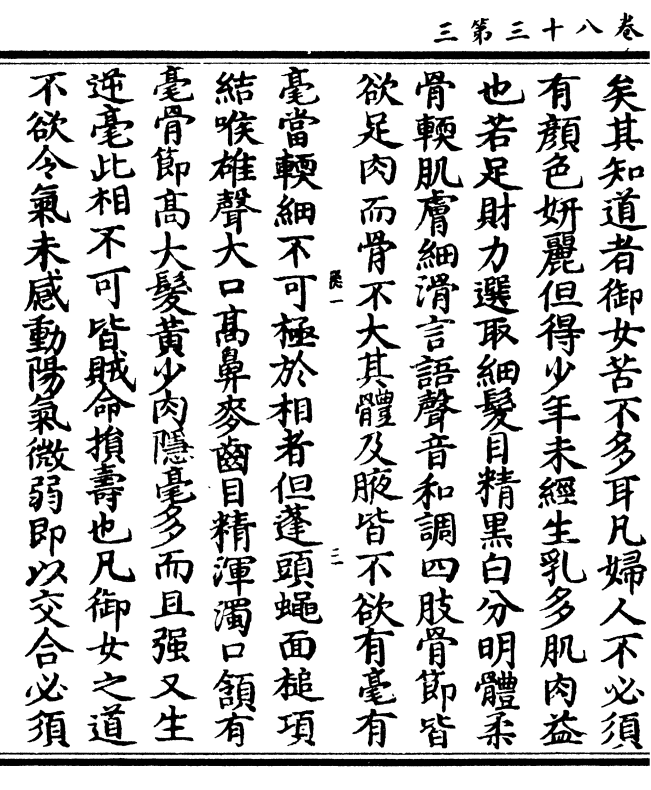 卷八十三第三
矣其知道者御女苦不多耳凡婦人不必須
有顔色妍麗但得少年未經生乳多肌肉益
也若足財力選取細髮目精黑白分明體柔
骨輭肌膚細滑言語聲音和調四肢骨節皆
欲足肉而骨不大其體及腋皆不欲有毫有
二一
毫當輭細不可極於相者但蓬頭蠅面槌項
結喉雄聲大口髙鼻麥齒目精渾濁口頷有
毫骨節髙大髮黄少肉隱毫多而且强又生
逆毫此相不可皆賊命損壽也凡御女之道
不欲令氣未感動陽氣微弱即以交合必須